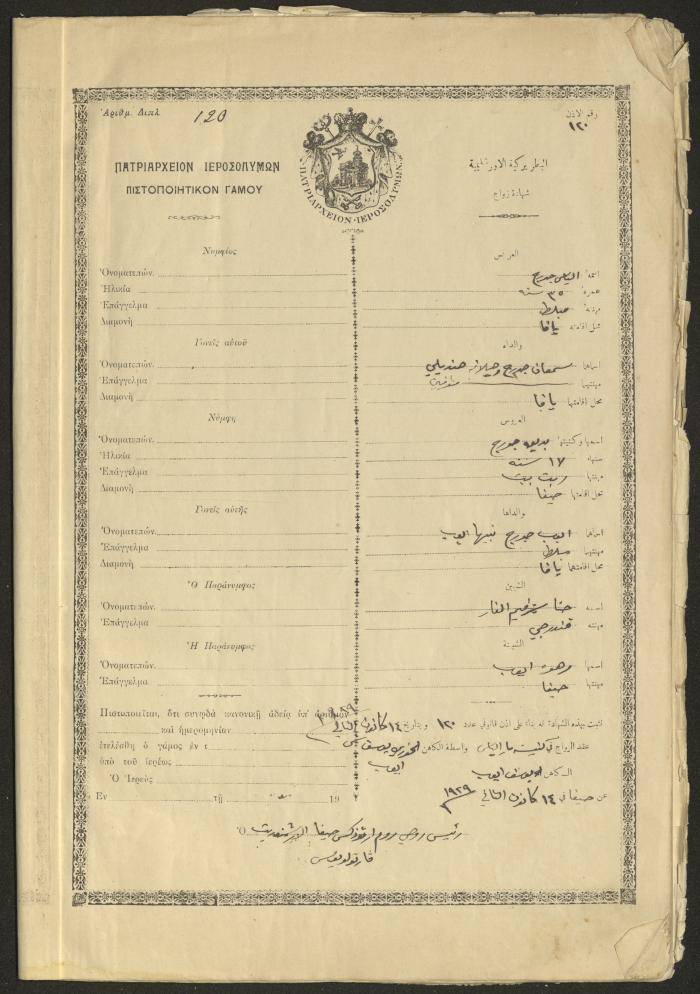 Ἀριθμ. Διπλ. 120
رقم الاذن
١٢٠
ΠΑΤΡΙΑΡΧΕΙΟΝ ΙΕΡΟΣΟΛΥΜΩΝ
ΠΙΣΤΟΠΟΙΗΤΙΚΟΝ ΓΑΜΟΥ
ΠΑΤΡΙΑΡΧΕΙΟΝ·ΙΕΡΟΣΟΛΥΜΩΝ
البطريركية الاورشليمية
شهادة زواج
Νυμφίος
Ὀνοματεπών.
Ἡλικία
Ἐπάγγελμα
Διαμονὴ
Γονεῖς αὐτοῦ
Ὀνοματεπών.
Ἐπάγγελμα
Διαμονὴ
Νύμφη
Ὀνοματεπών.
Ἡλικία
Ἐπάγγελμα
Διαμονὴ
Γονεῖς αὐτῆς
Ὀνοματεπών.
Ἐπάγγελμα
Διαμονὴ
Ὁ Παράνυμφος
Ὀνοματεπών.
Ἐπάγγελμα
Ἡ Παράνυμφος
Ὀνοματεπών.
Ἐπάγγελμα
Πιστοποιεῖται, ὅτι συνῳδὰ κανονικῇ ἀδείᾳ ὑπ' ἀριθμὸν
καὶ ἡμερομηνίαν
ἐτελέσθη ὁ γάμος ἐν τ
ὑπὸ τοῦ ἱερέως
Ὁ Ἱερεὺς
Ἐν τῇ 19
العريس
اسمه الياس جورج
عمره ٣٥ سنة
مهنته مبلط
محل اقامته يافا
والداه
اسماهما سمعان جورج وهيلانه
مهنتهما
محل اقامتهما يافا
العروس
اسمها وكنيتها بديعه جورج
سنها ١٧ سنه
مهنتها ربت بيت
محل اقامتها حيفا
والداها
اسماهما ايوب جورج نبيها ايوب
مهنتهما مبلط
محل اقامتهما يافا
الشبين
اسمه حنا الفار
مهنته قندرجي
الشبينة
اسمها ايوب
مهنتها حيفا
تثبت بهذه الشهادة انه بناء على اذن قانوني عدد ١٢٠ وبتاريخ ١٤ كانون الثاني
عقد الزواج في كنيسة مار الياس بواسطة الكاهن الخوري يوسف
ايوب
الكاهن يوسف ايوب
عن حيفا في ١٤ كانون الثاني ١٩٢٩
Ὁ رئيس روحي روم ارثوذكس حيفا